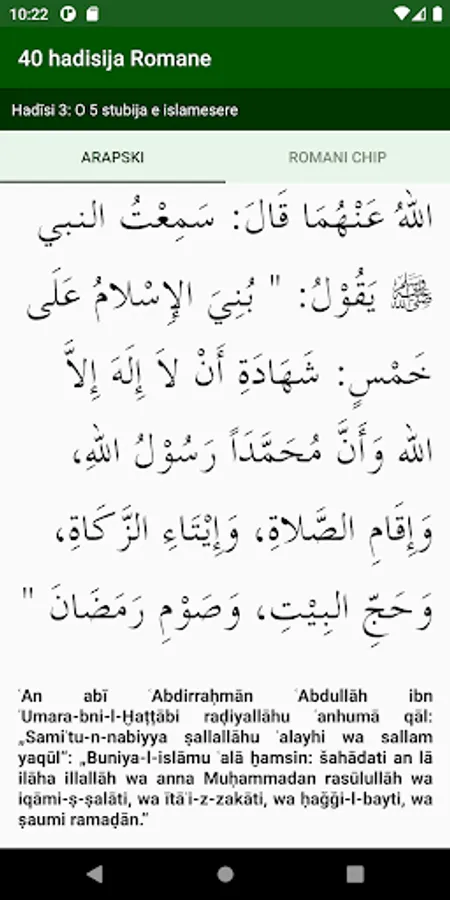 10:22
40 hadisija Romane
Hadīsi 3: O 5 stubija e islamesere
ARAPSKI
ROMANI CHIP
اللهُ عَنْهُمَا قَالَ: سَمِعْتُ النبي
ﷺ يَقُوْلُ: " بُنِيَ الإِسْلامُ عَلَى
خَمْسٍ: شَهَادَةِ أَنْ لاَ إِلَهَ إِلاَّ
الله وَأَنَّ مُحَمَّدَاً رَسُوْلُ اللهِ،
وَإِقَامِ الصَّلاةِ، وَإِيْتَاءِ الزَّكَاةِ،
وَحَجِّ البِيْتِ، وَصَوْمِ رَمَضَانَ "
ʿAn abī ʿAbdirraḥmān ʿAbdullāh ibn
ʿUmara-bni-l-Ḫaṭṭābi raḍiyallāhu ʿanhumā qāl:
„Samiʿtu-n-nabiyya ṣallallāhu ʿalayhi wa sallam
yaqūl“: „Buniya-l-islāmu ʿalā ḫamsin: šahādati an lā
ilāha illallāh wa anna Muḥammadan rasūlullāh wa
iqāmi-ṣ-ṣalāti, wa ītāʾi-z-zakāti, wa ḥaǧǧi-l-bayti, wa
ṣaumi ramaḍān.“